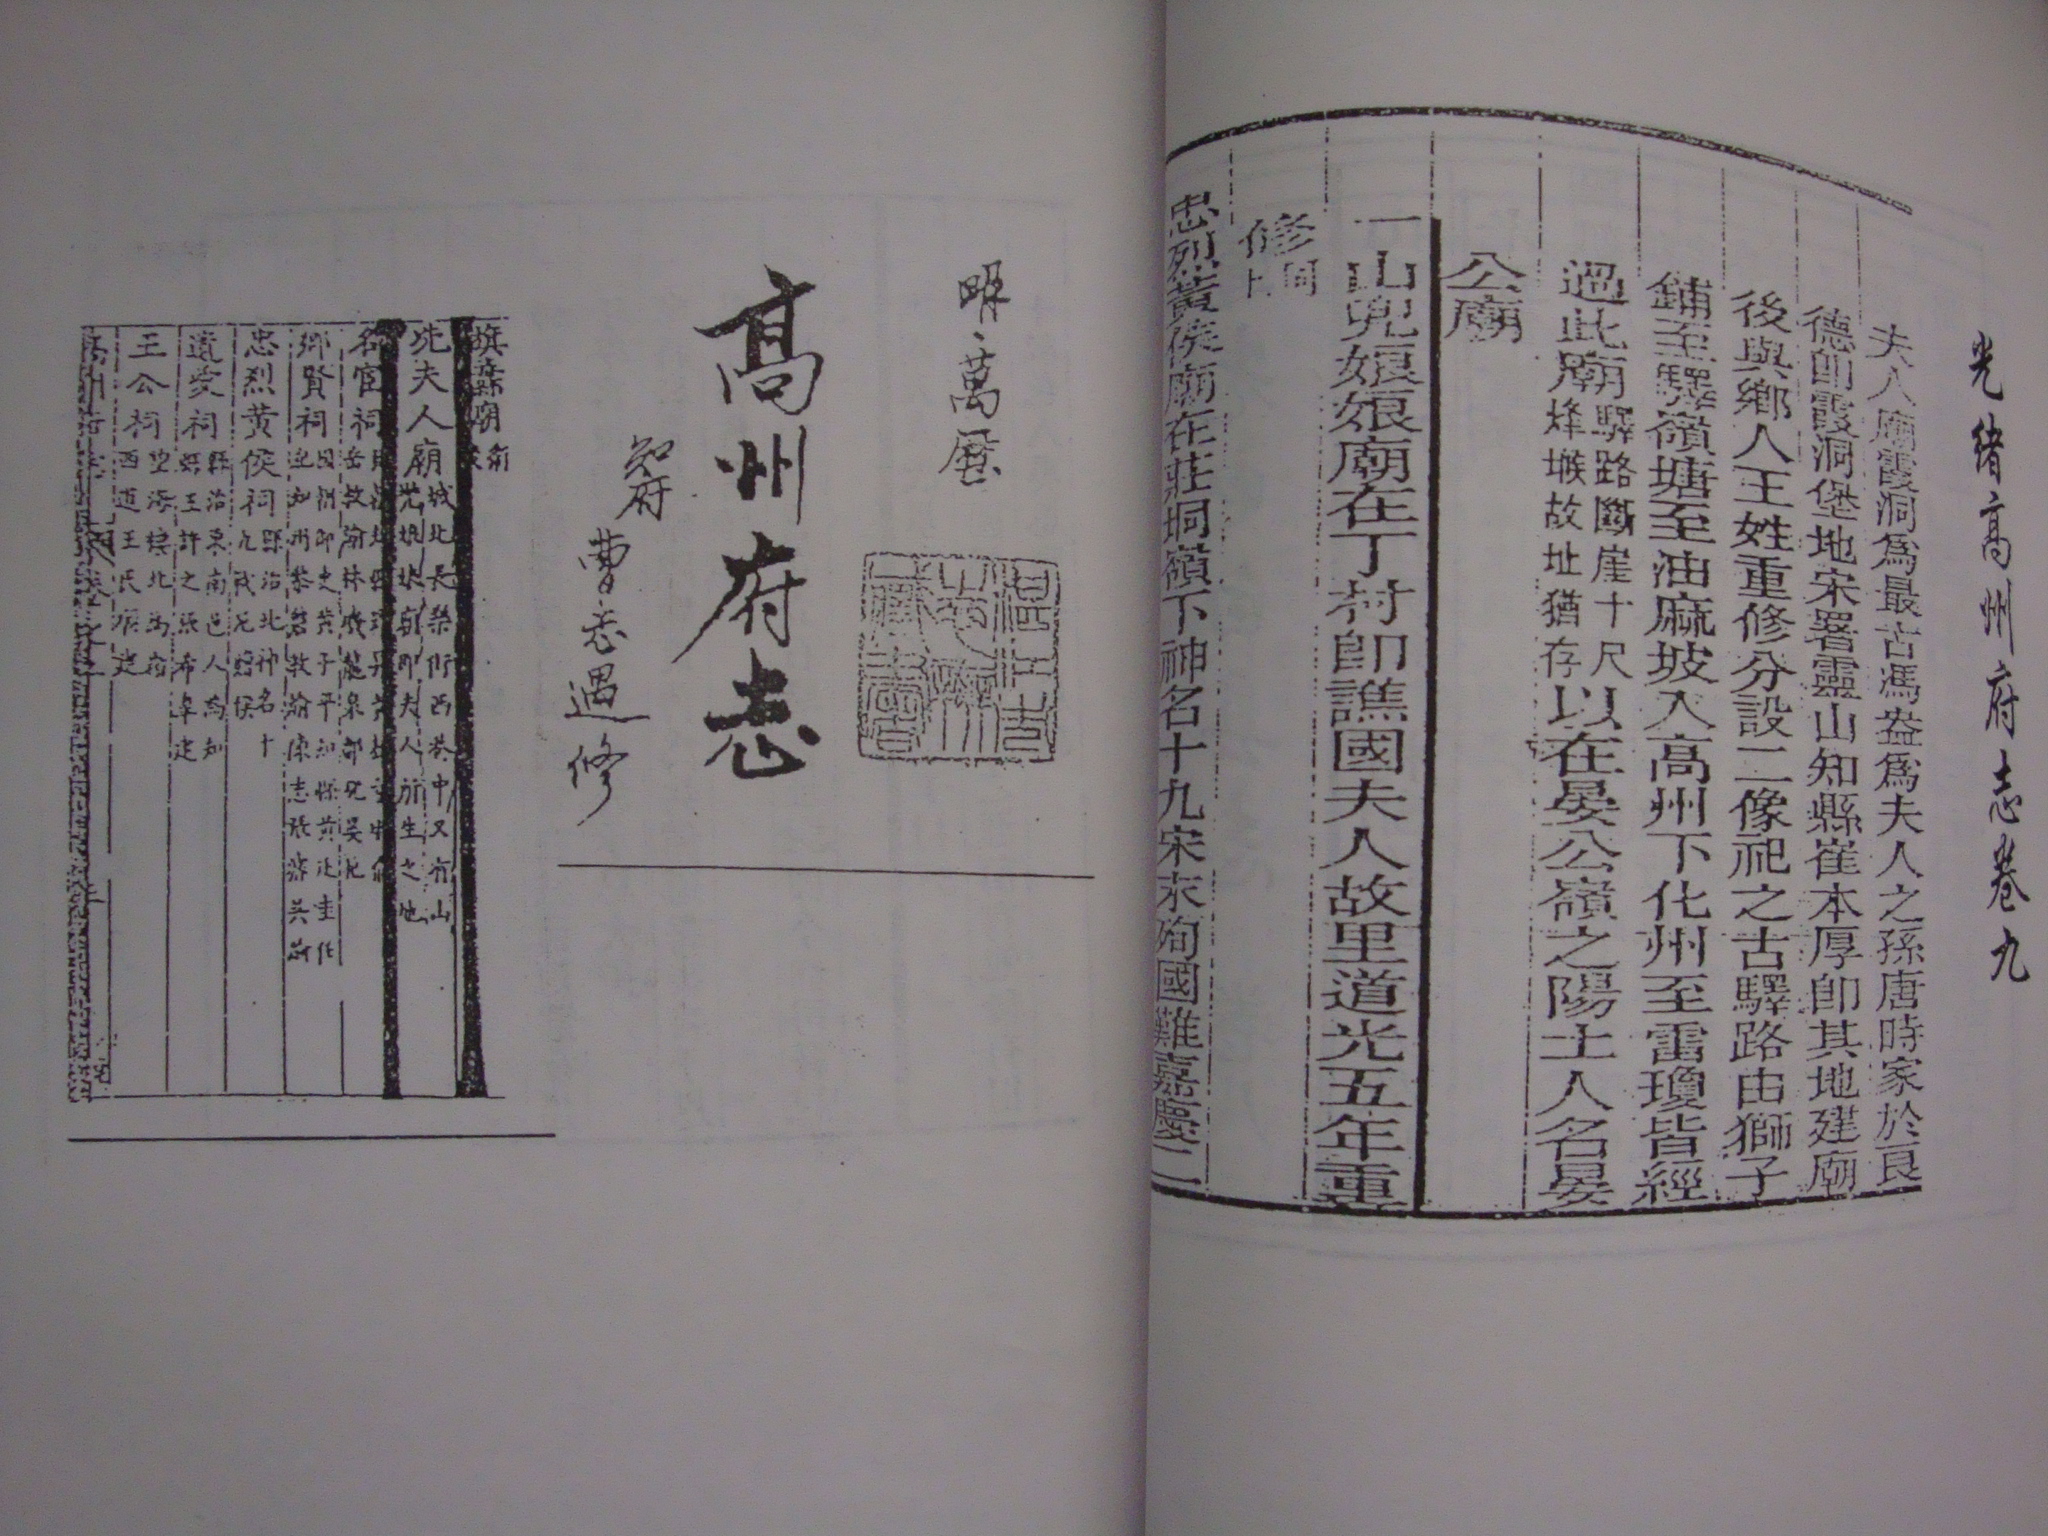 光緒高州府志卷九
夫人廟霞洞為最古馮盎為夫人之孫唐時家於良
德卽霞洞堡地宋署靈山知縣崔本厚卽其地建廟
後與鄉人王姓重修分設二像祀之古驛路由獅子
鋪至驛嶺塘至油麻坡入高州下化州至雷瓊皆經
過此廟驛路斷崖十尺烽堠故址猶存以在晏公嶺之陽土人名晏
公廟
一山兜娘娘廟在丁村卽譙國夫人故里道光五年重
修同上
忠烈黃侯廟在莊垌嶺下神名十九宋末殉國難嘉慶二
明、萬曆
高州府志
知府
曹志遇修
旗纛廟
冼夫人廟城北長樂街西巷中又有山兜娘娘廟卽夫人所生之地
名宦祠
鄉賢祠
忠烈黃侯祠縣治北神名十九戰死封侯
遺愛祠縣治東南邑人為知縣王許之張希皋建
王公祠